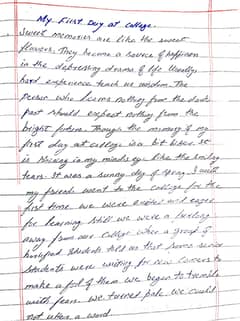 My First Day at College.
Sweet memories are like the sweet
flavours. They become a source of happiness
in the depressing drama of life. Usually,
hard experience teach us wisdom. The
person who learns nothing from the dark
past should expect nothing from the
bright future. Though the memory of my
first day at college is a bit bitter. It
is in my minds eye like the smiling
tears. It was a sunny day of Spring. I with
my friends went to the college for the
first time. we were excited and eager
for learning. still we were a furlong
away from our college when a group of
students told us that some senior
students were waiting for new comers to
make a fool of them. we began to tremble
with fear. we turned pale. we could
not utter a word.